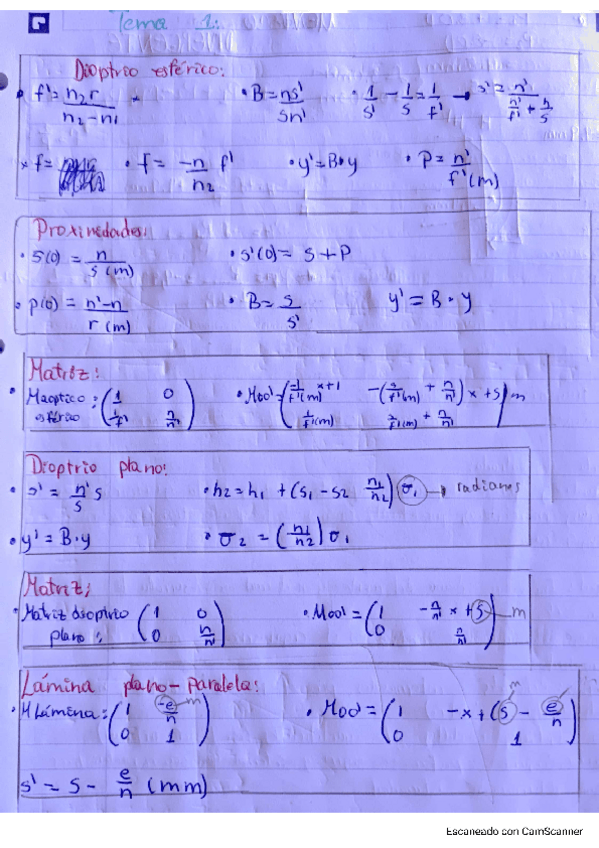 Tema 1:
Dioptrio esférico:
• f' = n₂r / (n₂ - n₁)
• B = ns' / sn'
• 1/s' - 1/s = 1/f' → s' = n' / (n'/f' + n/s)
× f =
• f = -n/n₂ f'
• y' = B · y
• P = n' / f'(m)
Proximidades:
• S(0) = n / s(m)
• s'(0) = S + P
• p(0) = n'-n / r(m)
• B = s / s'
y' = B · y
Matriz:
• esférico: (1 0
Dioptrio plano:
• s' = n'/s s
• h₂ = h₁ + (s₁ - s₂ n₁/n₂) σ₁ → radianes
• y' = B · y
• σ₂ = (n₁/n₂) σ₁
Matriz;
• Matriz dioptrio plano: (1 0
0 n/n')
• Moo' = (1 -n/n' x + s) m
0 n/n'
Lámina plano-paralela:
• M Lámina: (1 -e/n) m
0 1
• Moo' = (1 -x + (s - e/n)) m
0 1
s' = s - e/n (mm)
Escaneado con CamScanner